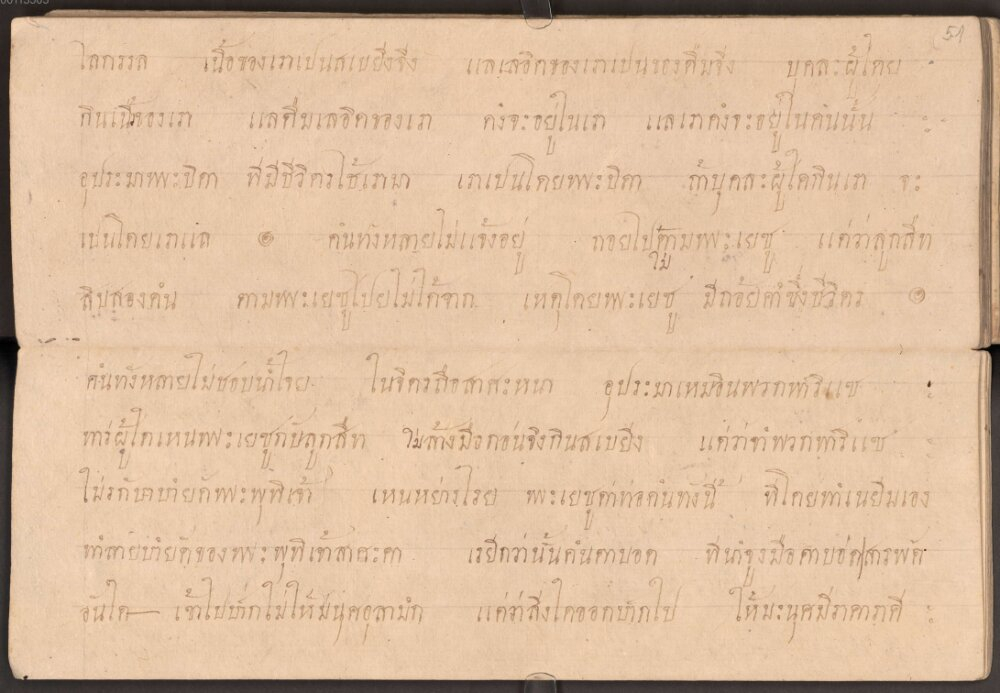 51
โลกรรล เนื้อของเราเปนสเบยีงจึง แลเลอิดของเราเปนของดืมจึง บุคละผู้โดย
กินเนื้ของเรา แลดืมเลอิดของเรา คํงจะอยู่ในเรา แลเราคํงจะอยู่ในคํนนั้น
อุประมาพระบิดา ที่มีชีวิตรใช้เรามา เราเปนโดยพระบิดา ถ้าบุคละผู้ใดกินเรา จะ
เปนโดยเราแล ๑ คํนทังหลายไม่แจ้งอยู่ ถอยไปตามพระเยซู แต่ว่าลูกสีท
ไม่
สิบสองคํน ตามพระเยซูไปยไม่ได้จาก เหตุโดยพระเยซู มีถ้อยคำซึ่งชีวิตร ๑
คํนทังหลายไม่ชอบน้ำไจย ในจิตรถือสาศะหนา อุประมาเหมือินพวกฟาริแซ
หาร่ผู้ใดเหนพระเยซูกับลูกสีท ไม่ล้างมือก่อนจึงกินสเบยีง แต่ว่าทำพวกฟาริแซ
ไม่รกับาทำยดัพระพุทิเจ้า เหนหย่างไรย พระเยซูตาท่อคํนทงนี้ ที่โดยทำเนยีมเอง
ทำลายบาํยดัของพระพุทิเจ้าสาศะดา เรยีกว่านั้นคํนตาบอด ที่นำจูงมือตาบอด สารพัด
อันใด เข้าไปปากไม่ให้มนุศอุลามัก แต่ว่าสิ่งใดออกปากไป ให้มะนุศมีราคาคี